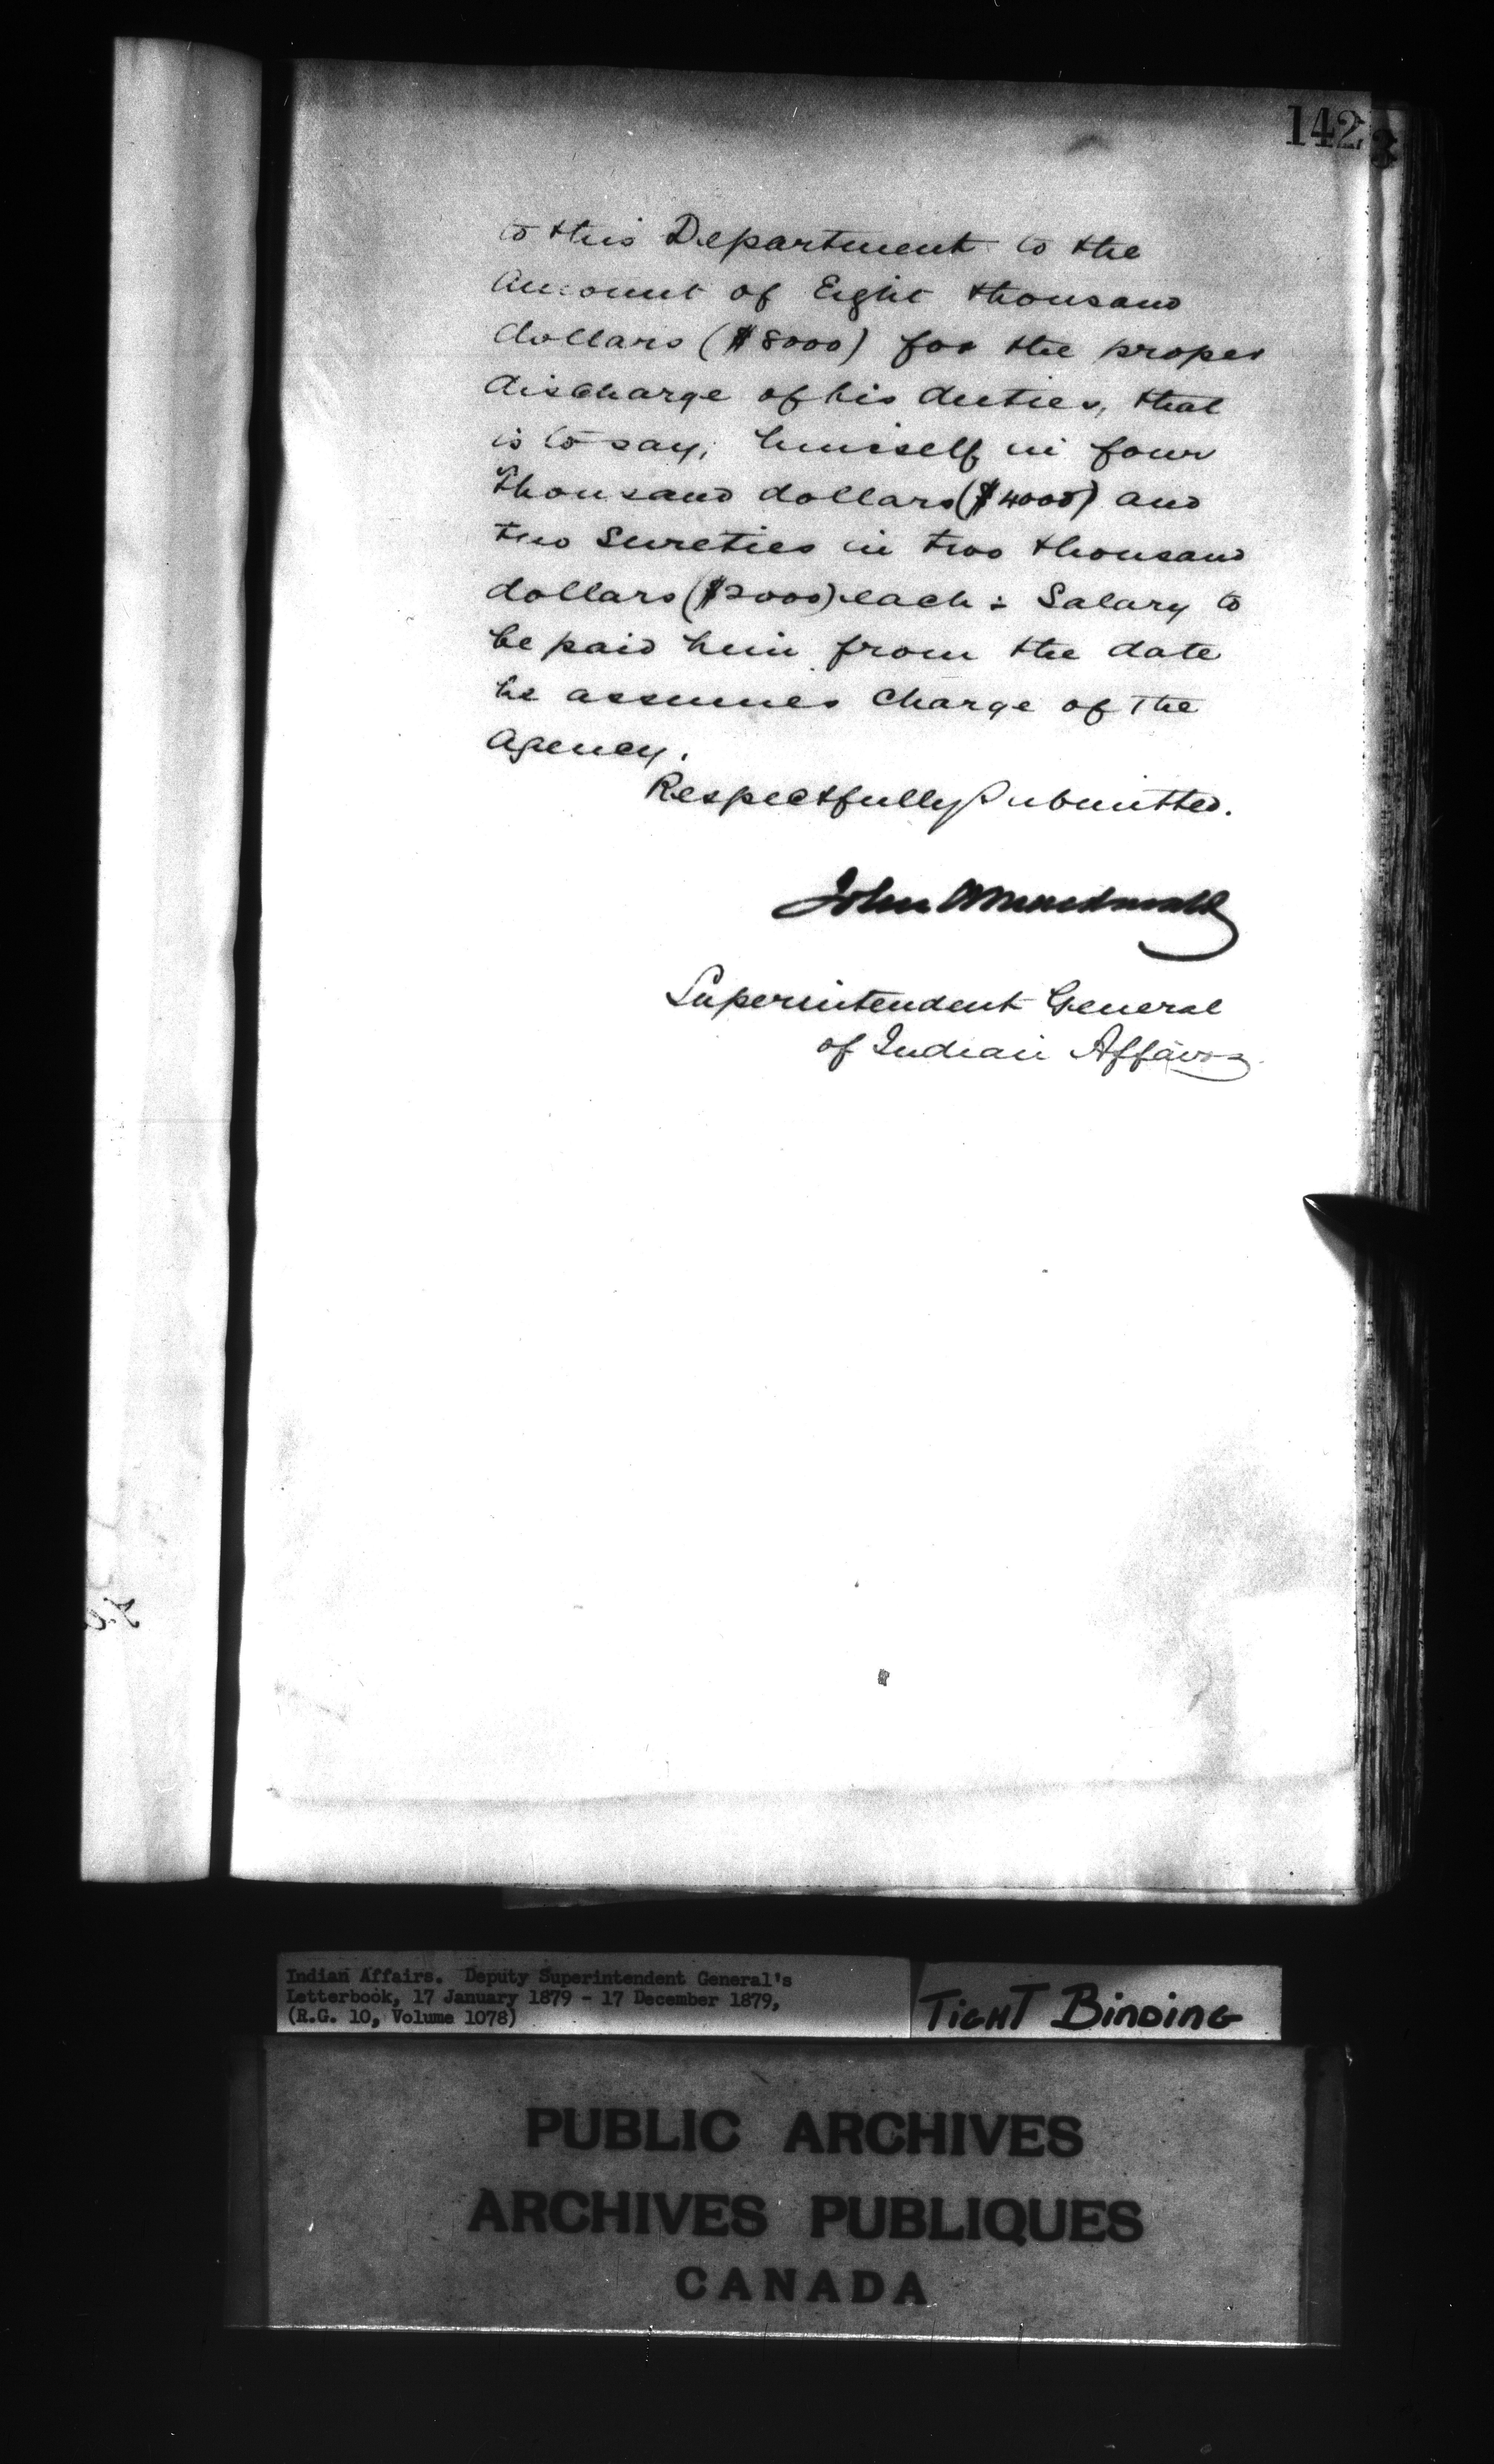 142
3
to this Department to the
amount of Eight thousand
dollars ($8000) for the proper
discharge of his duties, that
is to say; himself in four
thousand dollars ($4000) and
two Sureties in two thousand
dollars ($2000) each: Salary to
be paid him from the date
he assumes charge of the
Agency.
Respectfully Submitted.
John A Macdonald
Superintendent General
of Indian Affairs
Indian Affairs. Deputy Superintendent General's
Letterbook, 17 January 1879 - 17 December 1879,
(R.G. 10, Volume 1078)
TIGHT BINDING
PUBLIC ARCHIVES
ARCHIVES PUBLIQUES
CANADA